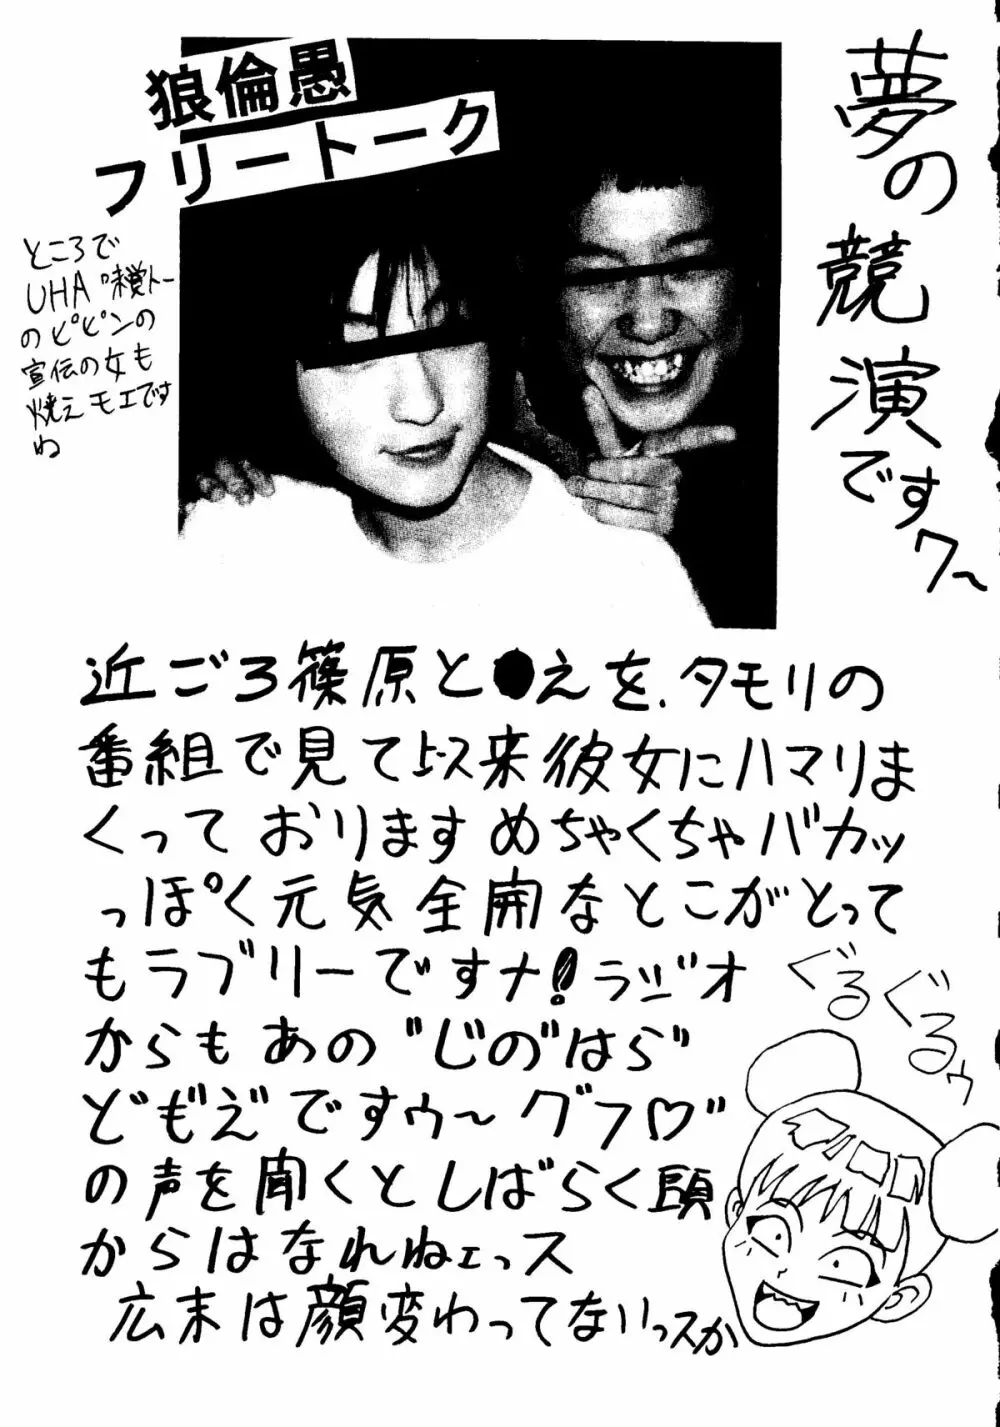 狼倫愚
フリートーク
夢の競演ですワ〜
ところで
UHA味覚トー
のピピンの
宣伝の女も
焼えモエです
ね
近ごろ篠原と●えを、タモリの
番組で見て以来彼女にハマりま
くっております めちゃくちゃバカッ
っぽく元気全開なとこがとって
もラブリーですナ!ラジオ
からもあの"じの゛はら゛
ど も゛え゛ですゥ〜グフ♡"
の声を聞くとしばらく頭
からはなれねェっス
広末は顔変わってないっスか
ぐるぐるゥ